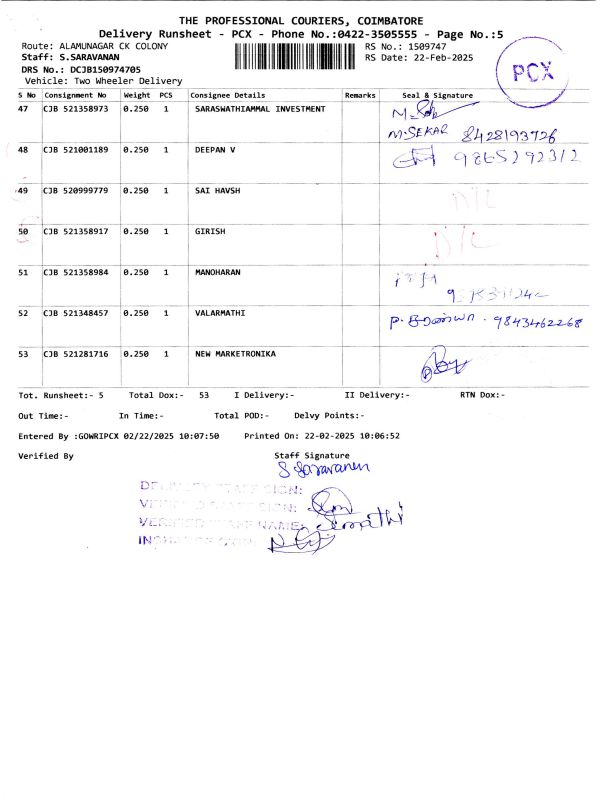 THE PROFESSIONAL COURIERS, COIMBATORE
Delivery Runsheet - PCX - Phone No.:0422-3505555 - Page No.:5
Route: ALAMUNAGAR CK COLONY
RS No.: 1509747
Staff: S.SARAVANAN
RS Date: 22-Feb-2025
DRS No.: DCJB150974705
Vehicle: Two Wheeler Delivery
PCX
S No Consignment No Weight PCS Consignee Details Remarks Seal & Signature
47 CJB 521358973 0.250 1 SARASWATHIAMMAL INVESTMENT
M.SEKAR 8428193726
48 CJB 521001189 0.250 1 DEEPAN V 9865292312
49 CJB 520999779 0.250 1 SAI HAVSH D/L
50 CJB 521358917 0.250 1 GIRISH D/L
51 CJB 521358984 0.250 1 MANOHARAN
52 CJB 521348457 0.250 1 VALARMATHI 9843462268
53 CJB 521281716 0.250 1 NEW MARKETRONIKA
Tot. Runsheet:- 5 Total Dox:- 53 I Delivery:- II Delivery:- RTN Dox:-
Out Time:- In Time:- Total POD:- Delvy Points:-
Entered By :GOWRIPCX 02/22/2025 10:07:50 Printed On: 22-02-2025 10:06:52
Verified By Staff Signature
S Saravanan
DELIVERY STAFF SIGN:
VERIFIED STAFF SIGN:
VERIFIED STAFF NAME:
INCHARGE SIGN: